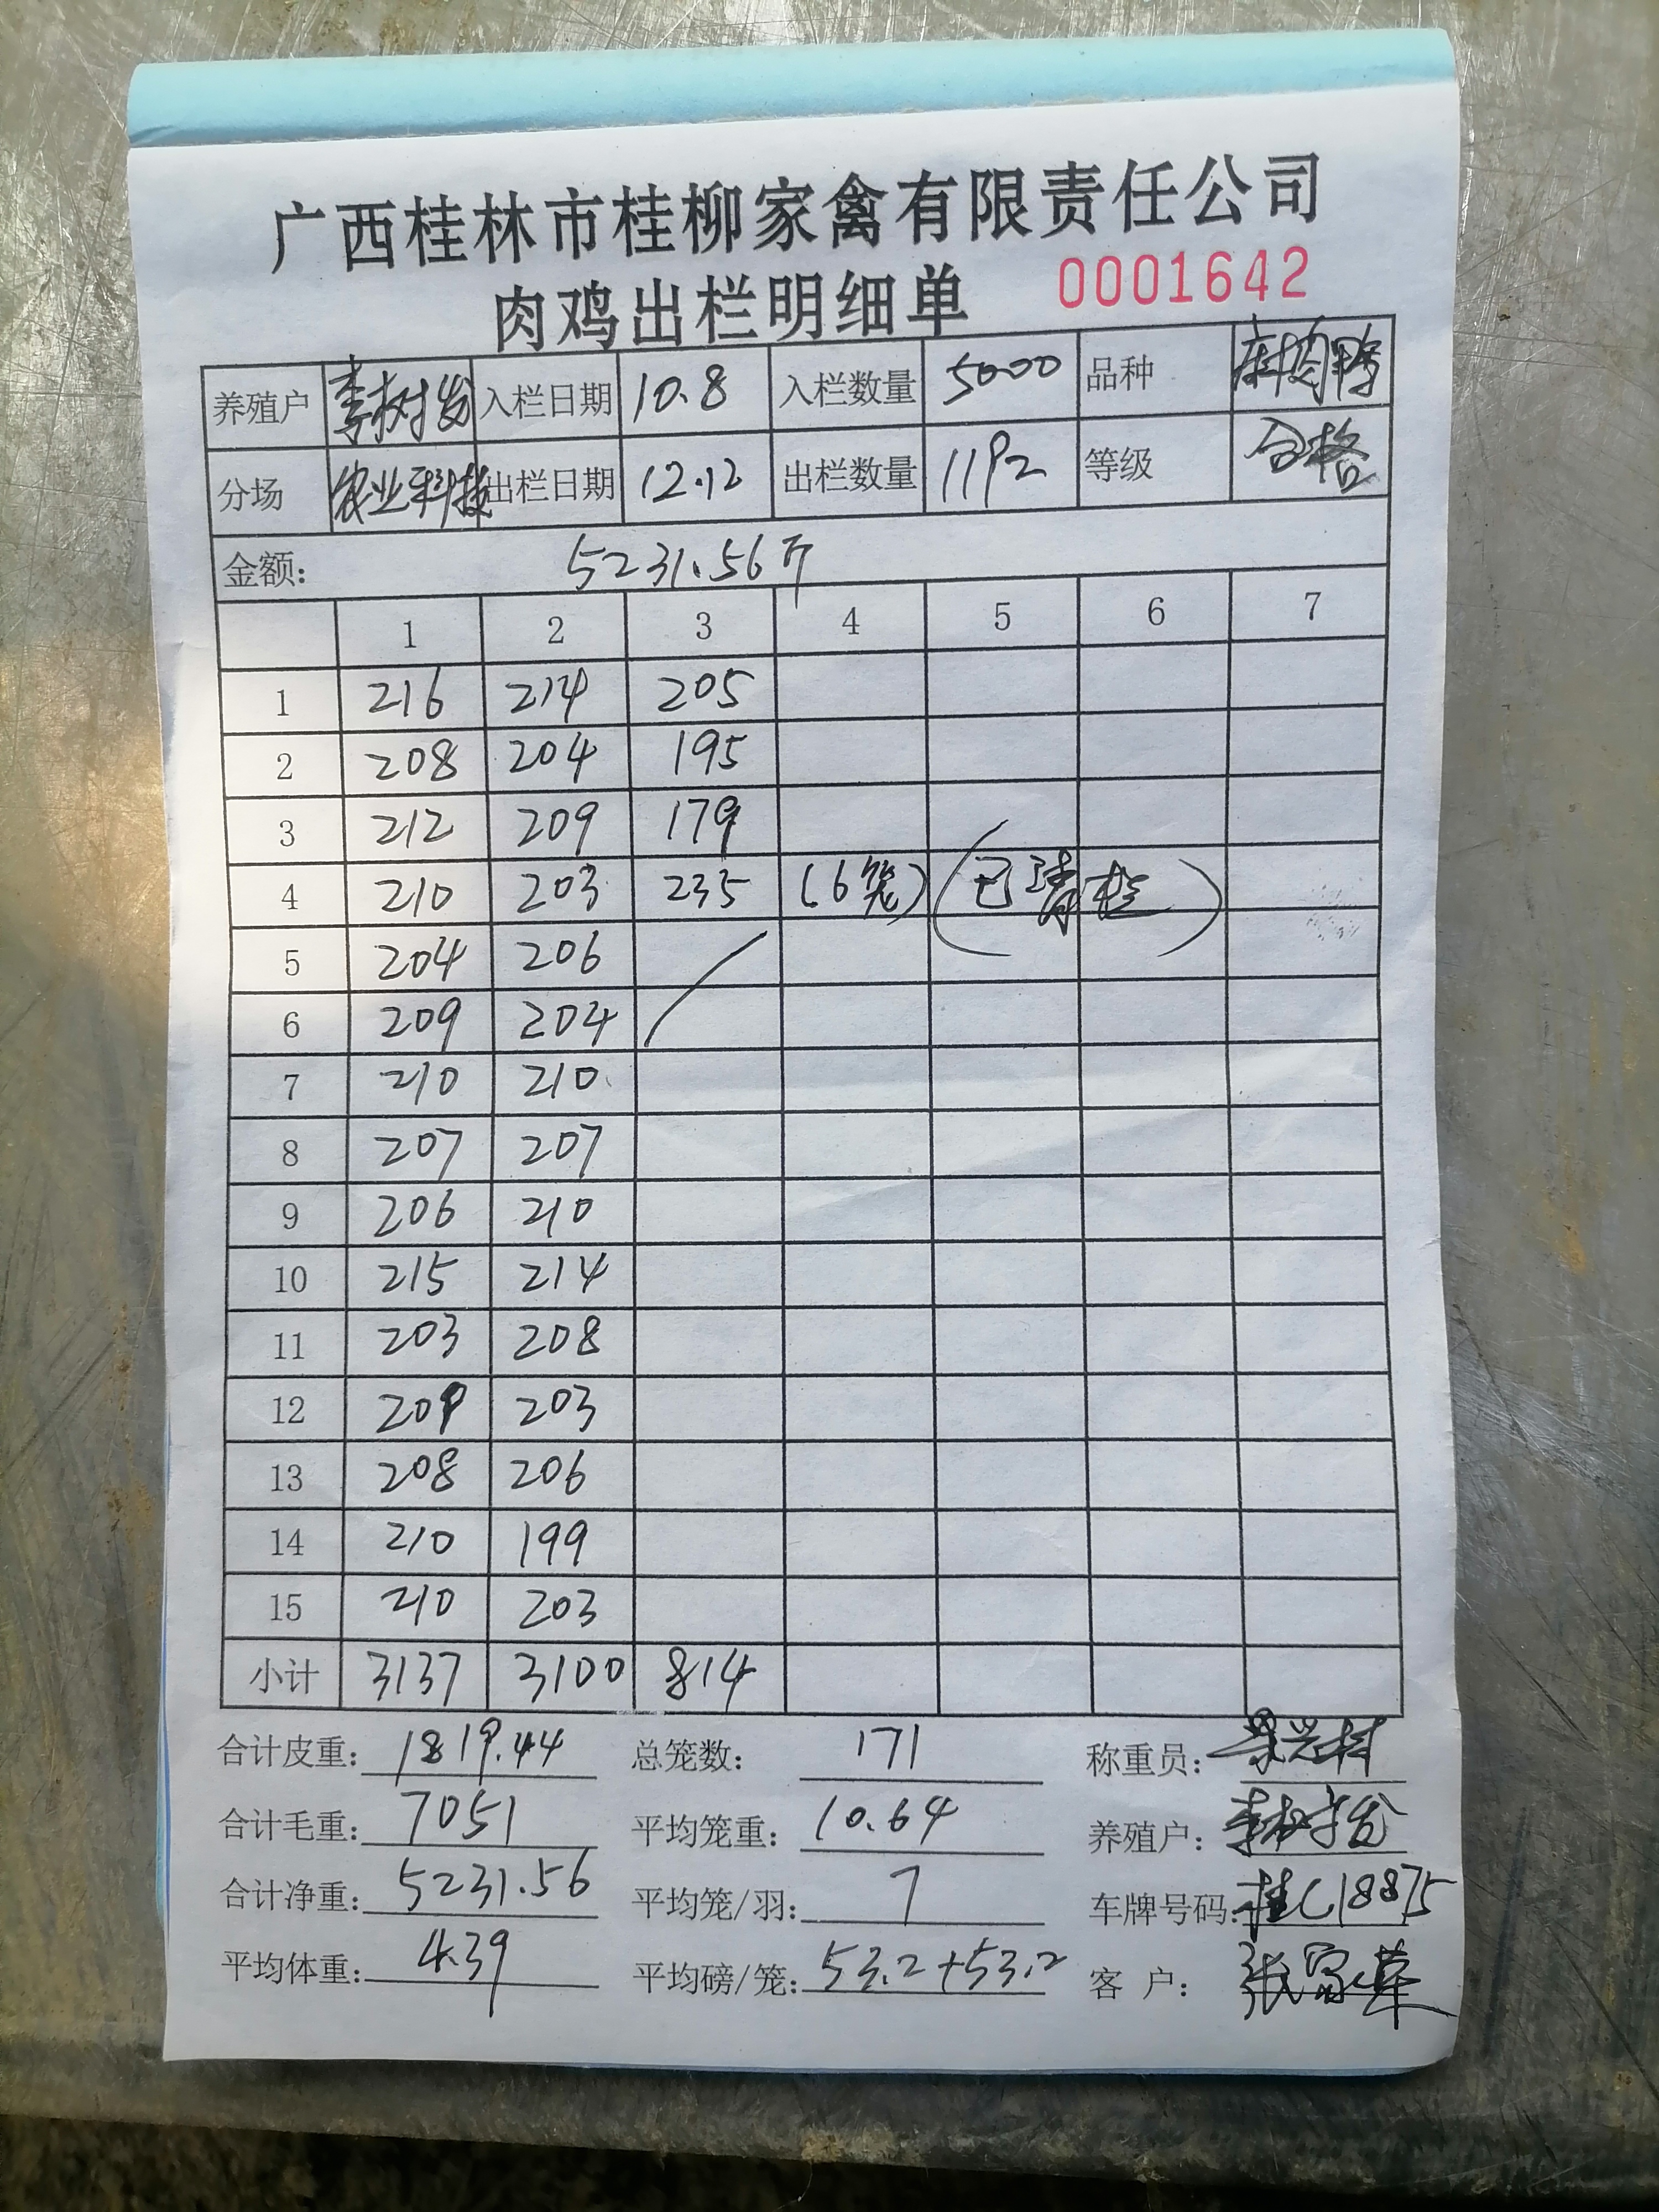 广西桂林市桂柳家禽有限责任公司
肉鸡出栏明细单 0001642
养殖户 李树发 入栏日期 10.8 入栏数量 5000 品种 鸭
分场 农业科技 出栏日期 12.12 出栏数量 1192 等级 合格
金额: 5231.56斤
1 2 3 4 5 6 7
1 216 214 205
2 208 204 195
3 212 209 179
4 210 203 235 (6笼) (已清栏)
5 204 206
6 209 204
7 210 210
8 207 207
9 206 210
10 215 214
11 203 208
12 209 203
13 208 206
14 210 199
15 210 203
小计 3137 3100 814
合计皮重: 1819.44 总笼数: 171 称重员:
合计毛重: 7051 平均笼重: 10.64 养殖户: 李树发
合计净重: 5231.56 平均笼/羽: 7 车牌号码: 桂C18875
平均体重: 4.39 平均磅/笼: 53.2+53.2 客 户: 张